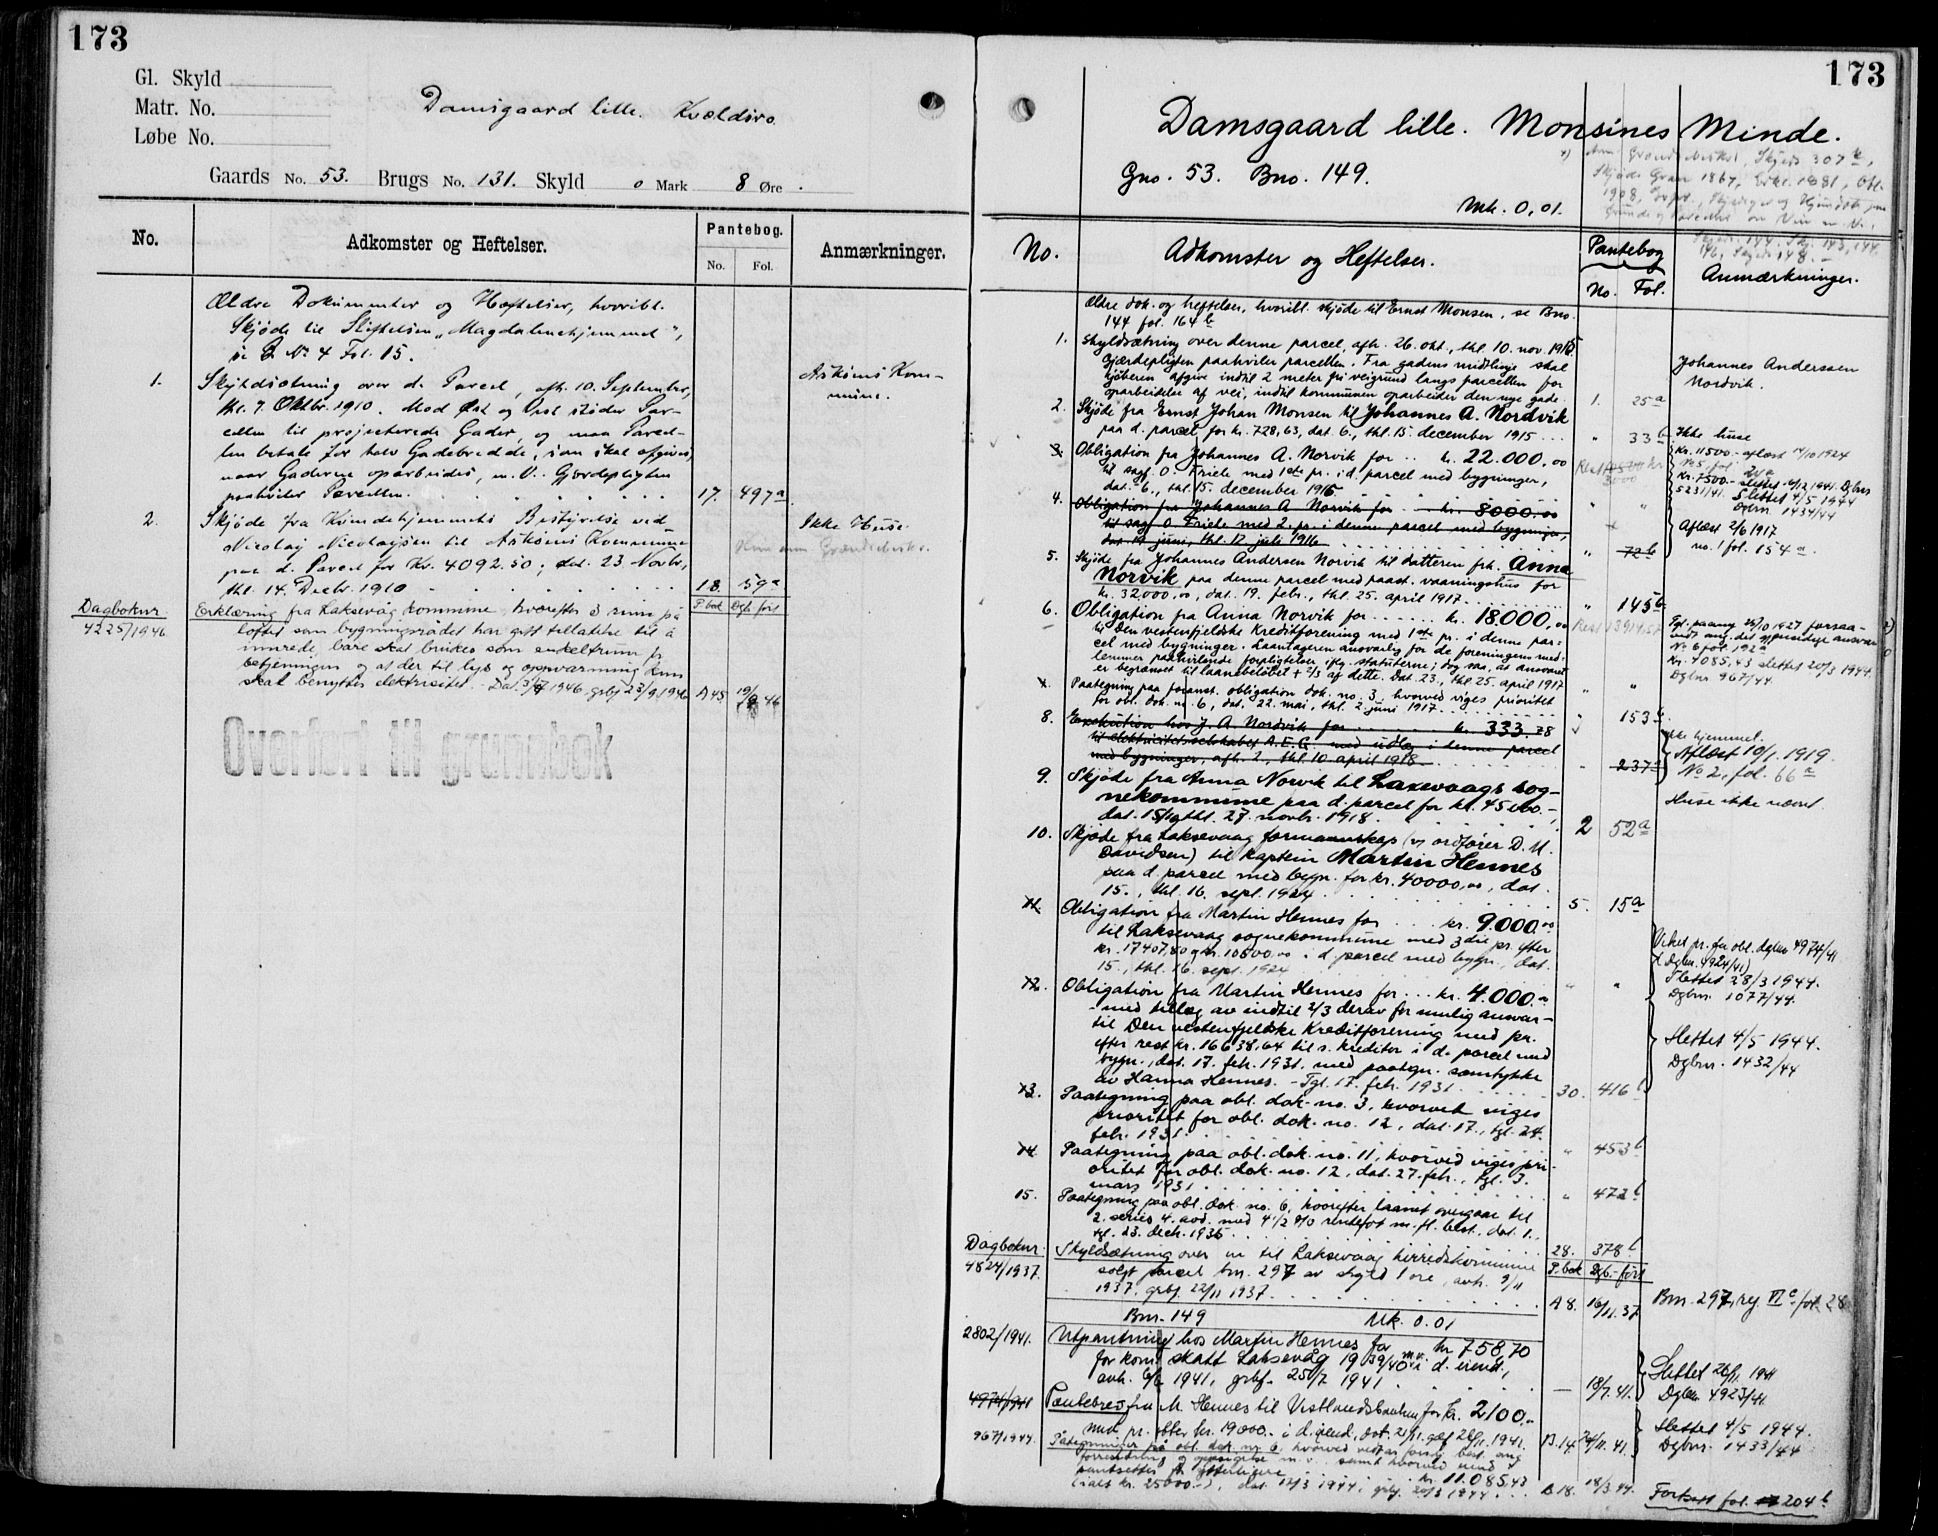 173
Gl. Skyld
Matr. No.
Løbe No.
Damsgaard lille. Kvældsro.
Gaards No. 53. Brugs No. 131. Skyld 0 Mark 8 Øre.
No. Adkomster og Heftelser. Pantebog. No. Fol. Anmærkninger.
Ældre Dokumenter og Hæftelser, hvoribl.
Skjøde til Stiftelsen "Magdalenehjemmet",
se B. No 4 Fol. 15.
1. Skyldsætning over d. Parcel, afh. 10. September, Askøens Kom-
thl. 7. Oktbr. 1910. Mod Øst og Vest støder Par- mune.
cellen til projecterede Gader, og maa Parcel-
len betale for halv Gadebredde, som skal afgives,
naar Gaderne oparbeides, m. v. Gjærdepligten
paahviler Parcellen. 17. 497a
2. Skjøde fra Kvindehjemmets Bestyrelse ved Ikke Huse.
Nicolay Nicolaysen til Askøens Kommune
paa d. Parcel for Kr. 4092.50; dat. 23 Novbr,
thl. 14. Decbr. 1910 18. 59a
Dagboknr. P. bok Dgb. ført
4225/1946 Erklæring fra Laksevåg kommune hvorefter 3 rum på
loftet som bygningsrådet har gitt tillatelse til å
innrede, bare skal brukes som enkeltrum for
betjeningen og at der til lys og oppvarmning kun
skal benyttes elektrisitet. - Dat. 3/7 1946, grbf. 23/9 1946 A 45 19/9 46
Overført til grunnbok
173
Damsgaard lille. Monsines Minde.
Gno. 53. Bno. 149.
Mk. 0,01.
No. Adkomster og Heftelser. Pantebog No. Fol. Anmærkninger.
Ældre dok. og heftelser, hvoribl. skjøde til Ernst Monsen, se Bno.
144 fol. 164b
1. Skyldsætning over denne parcel, afh. 26. okt., thl. 10. nov. 1915.
Gjærdepligten paahviler parcellen. Fra gadens midtlinje skal Johannes Anderssen
kjøberen afgive indtil 2 meter fri veigrund langs parcellen for Nordvik.
oparbeidelse af vei, indtil kommunen oparbeider den nye gade. 1. 25a
2. Skjøde fra Ernst Johan Monsen til Johannes A. Nordvik
paa d. parcel for kr. 728,63, dat. 6., thl. 15. december 1915 " 33b Ikke huse
3. Obligation fra Johannes A. Norvik for kr. 22.000,00 Kr. 11500.- aflæst 14/10 1924
til sagf. O. Friele med 1ste pr. i d. parcel med bygninger, No 5 fol. 24a
dat. 6., thl. 15. december 1915 Slettet 4/5 1944
4. Obligation fra Johannes A. Norvik for kr. 8000.00 Dgbnr. 1434/44
til sagf. O. Friele med 2. pr. i denne parcel med bygninger, Aflæst 2/6 1917
dat. 14 juni, thl. 12 juli 1916 " 72b no. 1 fol. 154a.
5. Skjøde fra Johannes Andersen Norvik til datteren frk. Anna
Norvik paa denne parcel med paast. vaaningshus for
kr. 32000,00, dat. 19. febr., thl. 25. april 1917 " 145b
6. Obligation fra Anna Norvik for kr. 18.000,00
til Den vestenfjeldske Kreditforening med 1ste pr. i denne par-
cel med bygninger. Laantageren ansvarlig for de foreningens med-
lemmer paahvilende forpligtelser iflg. statuterne; dog saa, at ansvaret Kr. 4085,43 slettet 20/3 1944.
er begrænset til laanebeløbet + 2/3 af dette. Dat. 23., thl. 25. april 1917 Dgbnr. 967/44.
7. Paategning paa foranst. obligation dok. no. 3, hvorved viges prioritet
for obl. dok. nr. 6, dat. 22. mai, thl. 2. juni 1917 " 153b
8. Exekution hos J. A. Nordvik for kr. 333.78 Ikke hjemmel.
til elektricitetsselskabet A.E.G. med udlæg i denne parcel Aflæst 10/1 1919.
med bygninger, afh. 2., thl. 10. april 1918 " 237a No 2, fol. 66a
9. Skjøde fra Anna Norvik til Laxevaags sog- Huse ikke nævnt.
nekommune paa d. parcel for kr. 45000.-,
dat. 15/10 thl. 27. novbr. 1918. 2 52a
10. Skjøde fra Laksevaag formannskap (v/ ordfører D. M.
Davidsen) til kaptein Martin Hennes
paa d. parcel med bygn. for kr. 40000,00, dat.
15., thl. 16. sept. 1924 5. 15a
11. Obligation fra Martin Hennes for kr. 9.000.00
til Laksevaag sognekommune med 3die pr. efter Veket pr. for obl. dgbnr 4974/41
kr. 17407,80 og kr. 10500,00 i d. parcel med bygn., dat. (Dgbnr. 4924/41)
15., thl. 16. sept. 1924 " " Slettet 28/3 1944.
Dgbnr. 1077/44.
12. Obligation fra Martin Hennes for kr. 4.000.-
med tillæg av indtil 2/3 derav for mulig ansvar-
til Den vestenfjeldske Kreditforening med pr.
efter rest kr. 16638,64 til s. kreditor i d. parcel med Slettet 4/5 1944.
bygn., dat. 17. febr. 1931, med paategn. samtykke Dgbnr. 1432/44
av Hanna Hennes. - Tgl. 17. febr. 1931 30. 416b
13. Paategning paa obl. dok. no. 3, hvorved viges
prioritet for obl. dok. no. 12, dat. 17., tgl. 24.
febr. 1931 " 453b
14. Paategning paa obl. dok. no. 11, hvorved viges pri-
oritet for obl. dok. no. 12, dat. 27. febr., tgl. 3.
mars 1931 " 472b
15. Paategning paa obl. dok. no. 6, hvorefter laanet overgaar til
2. series 4. avd. med 4 1/2 % rentefot m. fl. best., dat. 1.,
tgl. 23. decbr. 1935 28. 378b
Dagboknr. P. bok Dgb.-ført
4824/1937. Skyldsætning over en til Laksevaag herredskommune
solgt parcel bnr. 297 av skyld 1 øre, avh. 9/11
1937, grbf. 22/11 1937 A 8. 16/11.37 Bnr. 297, reg. VIc fol. 28
Bnr. 149 Mk. 0.01
2802/1941. Utpantning hos Martin Hennes for kr 758,70
for kom. skatt Laksevåg 1939/40 m.v. i d. eiend., Slettet 26/11 1941
avh. 6/6 1941, grbf. 25/7 1941 — 18/7.41. Dgbnr 4923/41.
4974/1941 Pantebrev fra M. Hennes til Vestlandsbanken for kr. 2100.- Slettet 4/5 1944.
med pr. etter kr. 19000.- i d. eiend., dat. 21/11, grbf. 26/11. 1941. B.14. 24/11.41. Dgbnr. 1433/44
967/1944. Påtegninger på obl. dok. nr 6, hvorved vedtas forsk. best. ang.
forrentning og oppsigelse m. v. samt hvorved eiend.
pantsettes for ytterligere kr. 11.085,43
(ialt kr. 25000.-), dat. 13/3 1944, grbf. 20/3 1944. B 18. 18/3 44.
Fortsatt fol. 204b